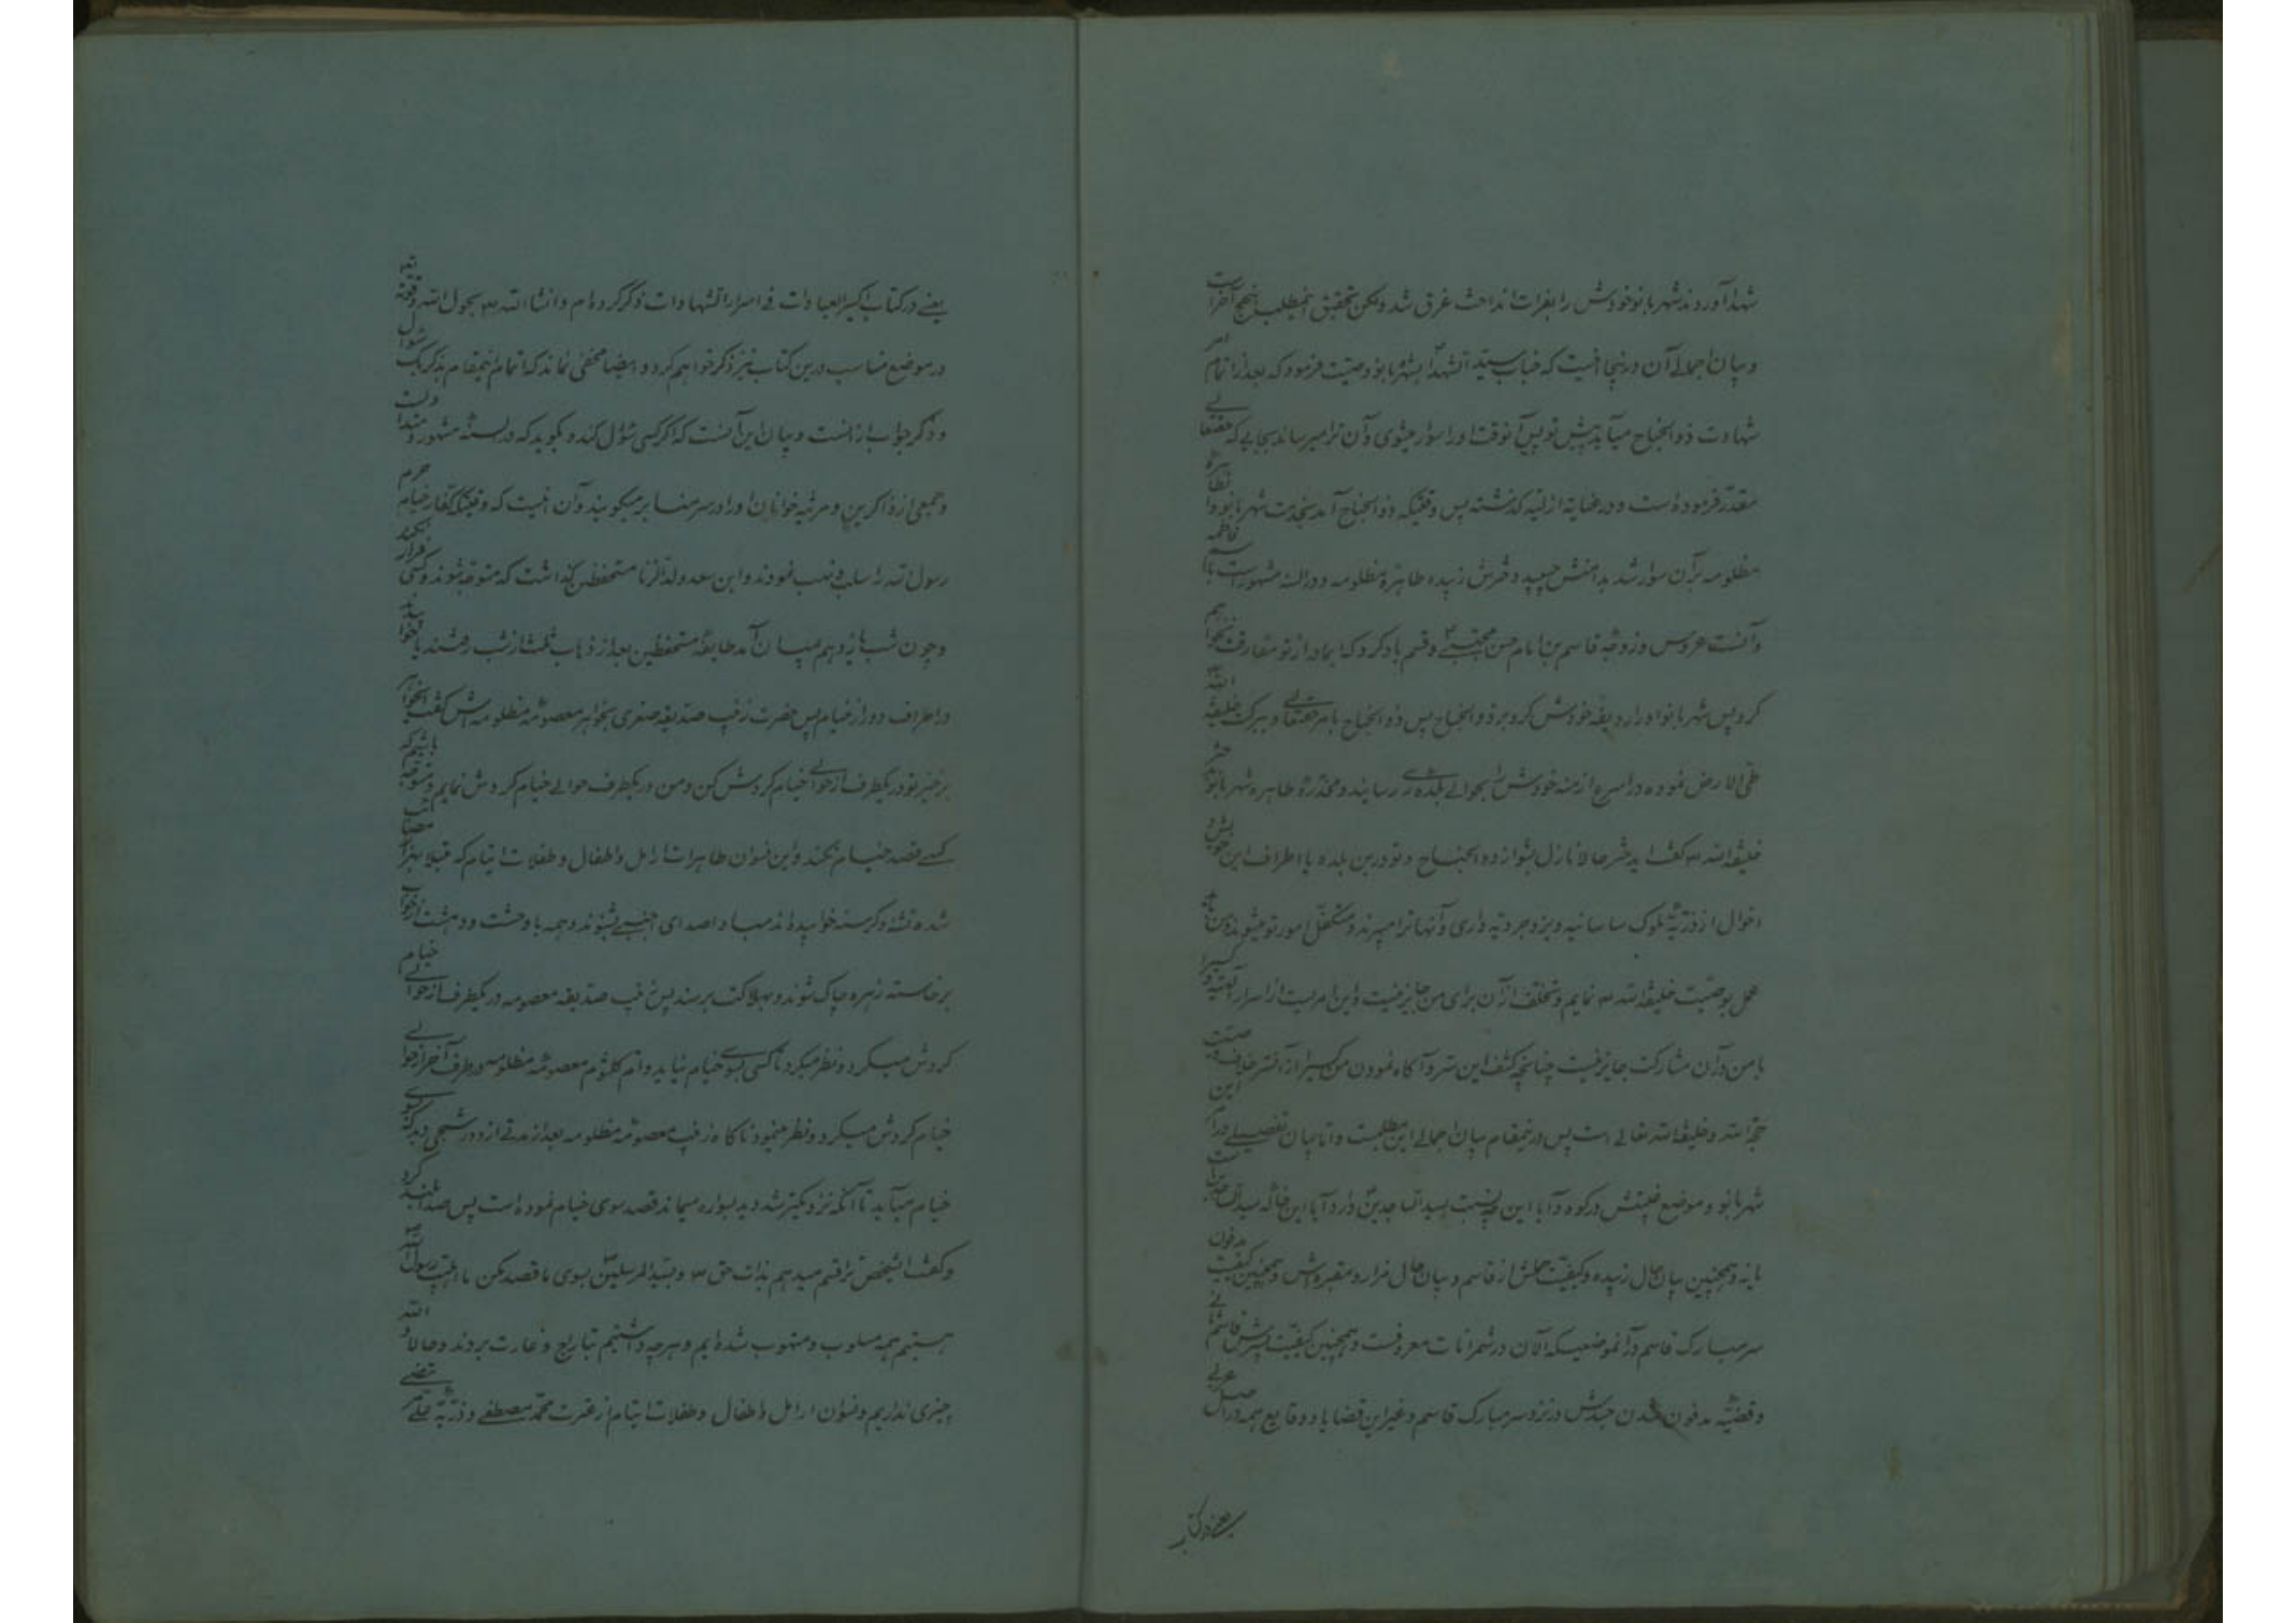 شهدا آوردند شهربانو خودش را بفرات انداخت غرق شد ولکن تحقیق اینمطلب بنهج آخر است
و بیان اجمالی آن درینجا اینست که جناب سید الشهدا بشهربانو وصیت فرمود که بعد از اتمام امر
شهادت ذو الجناح میآید پیش تو پس آنوقت اورا سوار میشوی و آن ترا میرساند بجایی که حقتعالی
مقدر فرموده است و درعنایة ازلیه گذشته پس وقتیکه ذو الجناح آمد بخدمت شهربانو و آن
مظلومه بر آن سوار شد بدامنش چسپید دخترش زبیده طاهرۀ مظلومه و در السنه مشهور است بفاطمه
و آنست عروس و زوجه قاسم بن امام حسن مجتبی و قسم یاد کرد که ایمادر از تو مفارقت نخواهم
کرد پس شهربانو اورا ردیفه خودش کرد بر ذو الجناح پس ذو الجناح بامر حقتعالی و ببرکت خلیفة الله
طی الارض نموده در اسرع ازمنه خودش را بحوالی بلده ری رسانید و مخدرۀ طاهره شهربانو
خلیفة الله گفت ایدختر حالا نازل بشو از ذو الجناح و تو درین بلده یا اطراف این
اخوال از ذریّۀ ملوک ساسانیه و یزدجردیه داری و آنها ترا میبرند و متکفل امور تو میشوند و من باید
عمل بوصیت خلیفة الله نمایم و تخلف از آن برای من جایز نیست و این امریست از اسرار الهیه
با من در آن مشارکت جایز نیست چنانچه کشف این سر و آگاه نمودن من کسیرا از آن سر خلاف وصیت
حجة الله و خلیفة الله تعالی است پس درینمقام بیان اجمالی این مطلبست و اما بیان تفصیلی
شهربانو و موضع غیبتش در کوه و آیا این چه نسبت بسید الساجدین دارد آیا این خاله سید الساجدین است
یا نه و همچنین بیان حال زبیده و کیفیت حملش از قاسم و بیان حال مزار و مقبره‌اش و همچنین کیفیت مدفون
سر مبارک قاسم در آنموضعیکه الآن در شمرانات معروفست و همچنین کیفیت پسرش قاسم ثانی
و قضیۀ مدفون شدن جسدش در نزد سر مبارک قاسم و غیر این قضایا و وقایع همه در اصل عربی
یعنی در کتاب
یعنی در کتاب اکسیر العبادات فی اسرار الشهادات ذکر کرده‌ام و انشاء الله بحول الله و قوته
در موضع مناسب درین کتاب نیز ذکر خواهم کرد و ایضا مخفی نماند که اتمام اینمقام بذکر یک سؤال
و ذکر جواب از آنست و بیان این آنست که اگر کسی سؤال کند و بگوید که در السنه مشهور و متداولست
و جمعی از ذاکرین و مرثیه خوانان اورا در سر منابر میگویند و آن اینست که وقتیکه کفار خیام حرم
رسول الله را سلب و نهب نمودند و ابن سعد ولد الزنا مستحفظین گذاشت که متوجه شوند و کسی فرار نکند
و چون شب یازدهم بمیان آمد طایفۀ مستحفظین بعد از ذهاب ثلث از شب رفتند بخوابیدند
در اطراف دور از خیام پس حضرت زینب صدیقه صغری بخواهر معصومۀ مظلومه‌اش گفت ایخواهر
برخیز تو در یکطرف از حوالی خیام گردش کن و من در یکطرف حوالی خیام گردش نمایم و متوجه باشیم که
کسی قصد خیام نکند و این نسوان طاهرات ارامل و اطفال و طفلات ایتام که
شده تشنه و گرسنه خوابیده‌اند مبادا صدای اجنبی بشنوند و همه با وحشت و دهشت از خواب
برخاسته زهره چاک شوند و بهلاکت برسند پس زینب صدیقه معصومه در یکطرف از حوالی خیام
گردش میکرد و نظر میکرد تا کسی بسوی خیام نیاید و ام کلثوم معصومۀ مظلومه در طرف آخر از حوالی
خیام گردش میکرد و نظر مینمود ناگاه زینب معصومۀ مظلومه بعد از مدتی از دور شبحی دید که بسوی
خیام میآید تا آنکه نزدیکتر شد دید بسواره میماند قصد سوی خیام نموده است پس صدا بلند کرد
و گفت ایشخص ترا قسم میدهم بذات حق و بسید المرسلین بسوی ما قصد مکن ما اهلبیت رسول الله
هستیم همه مسلوب و منهوب شده‌ایم و هر چه داشتیم بتاراج و غارت بردند و حالا و الله
چیزی نداریم و نسوان ارامل و اطفال و طفلات ایتام از عترت محمد مصطفی و ذریّۀ علی مرتضی